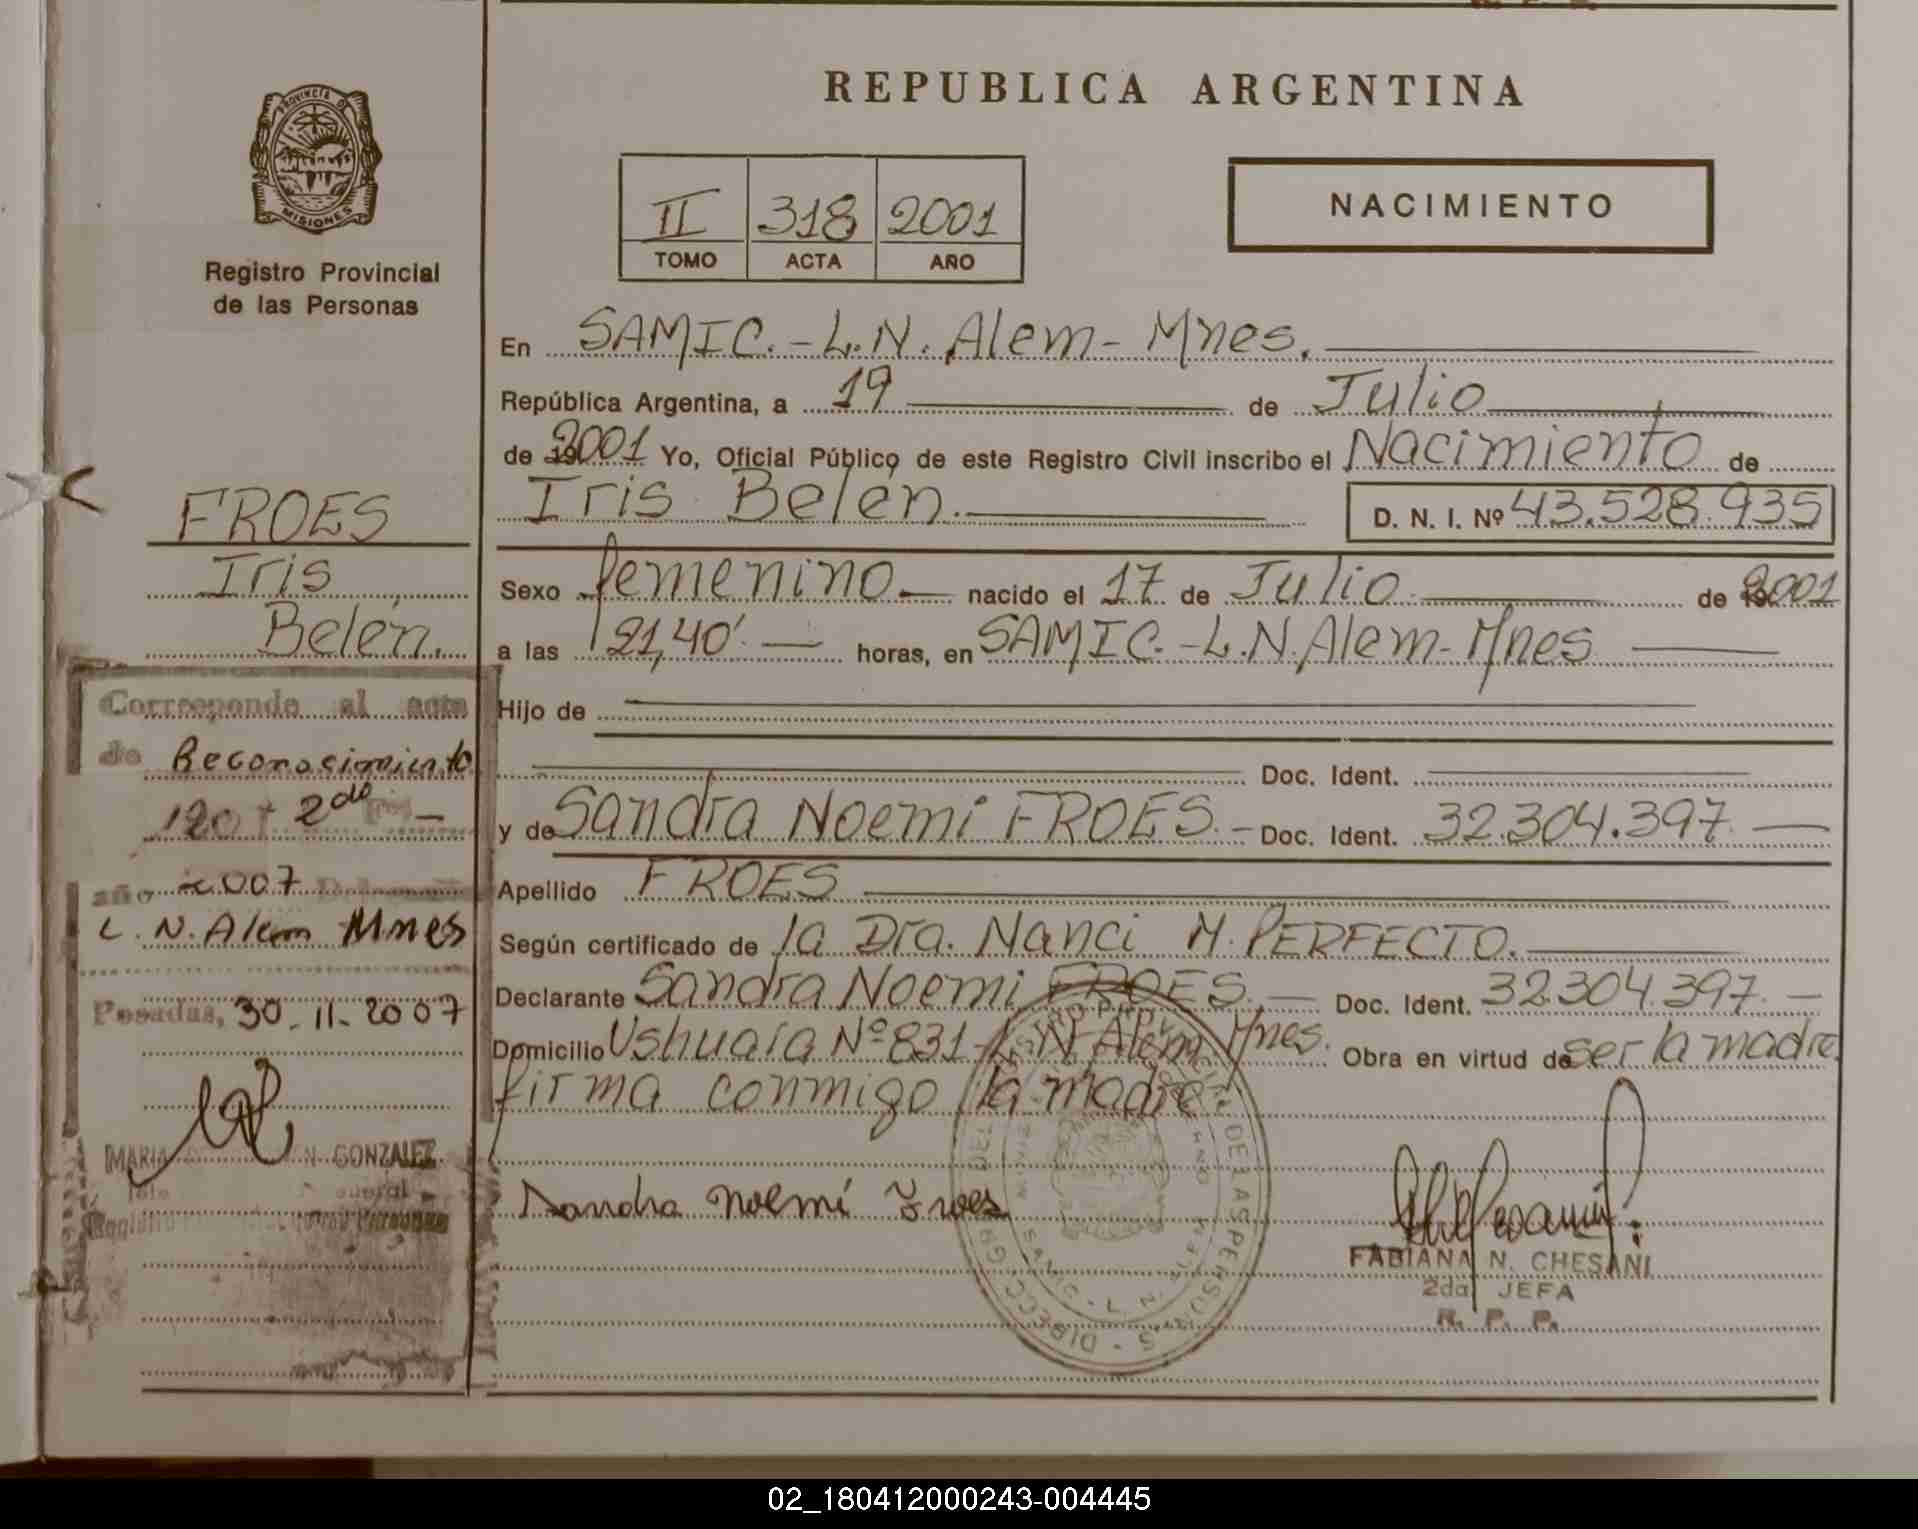 R. P. P.
REPUBLICA ARGENTINA
PROVINCIA D
MISIONES
Registro Provincial
de las Personas
II 318 2001
TOMO ACTA AÑO
NACIMIENTO
En SAMIC.-L.N. Alem- Mnes.
República Argentina, a 19 de Julio
de 2001 Yo, Oficial Público de este Registro Civil inscribo el Nacimiento de
Iris Belén. D. N. I. Nº 43.528.935
Sexo femenino nacido el 17 de Julio de 2001
a las 21,40' horas, en SAMIC.-L.N. Alem- Mnes
Hijo de
Doc. Ident.
y de Sandra Noemi FROES.- Doc. Ident. 32.304.397.
Apellido FROES
Según certificado de la Dra. Nanci M. PERFECTO.
Declarante Sandra Noemi FROES. Doc. Ident. 32.304.397.
Domicilio Ushuaia Nº 831 L.N. Alem. Mnes. Obra en virtud de ser la madre
firma conmigo la madre
Sandra Noemí Froes
FABIANA N. CHESANI
2da JEFA
R. P. P.
DE LAS PERSONAS
SAMIC - L. N.
FROES
Iris
Belén.
Corresponde al acta
de Reconocimiento
120 2do
año 2007
L. N. Alem Mnes
Posadas, 30-11-2007
MARIA GONZALEZ
02_180412000243-004445